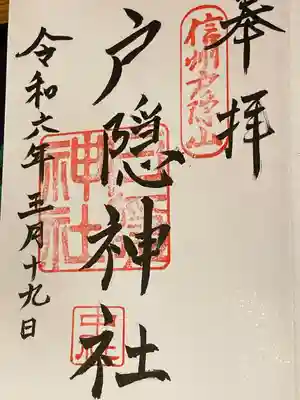 奉拝
信州戸隠山
戸隠神社
戸隠神社
中社
令和六年三月十九日